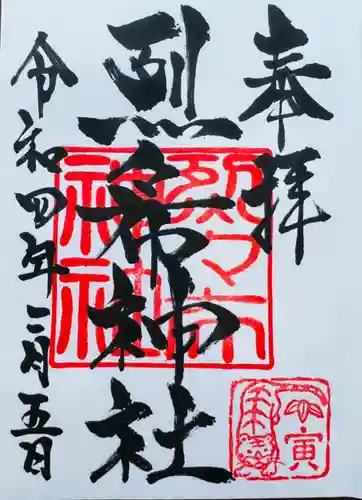 奉拝
烈々布神社
令和四年三月五日
烈々布
神社
寅